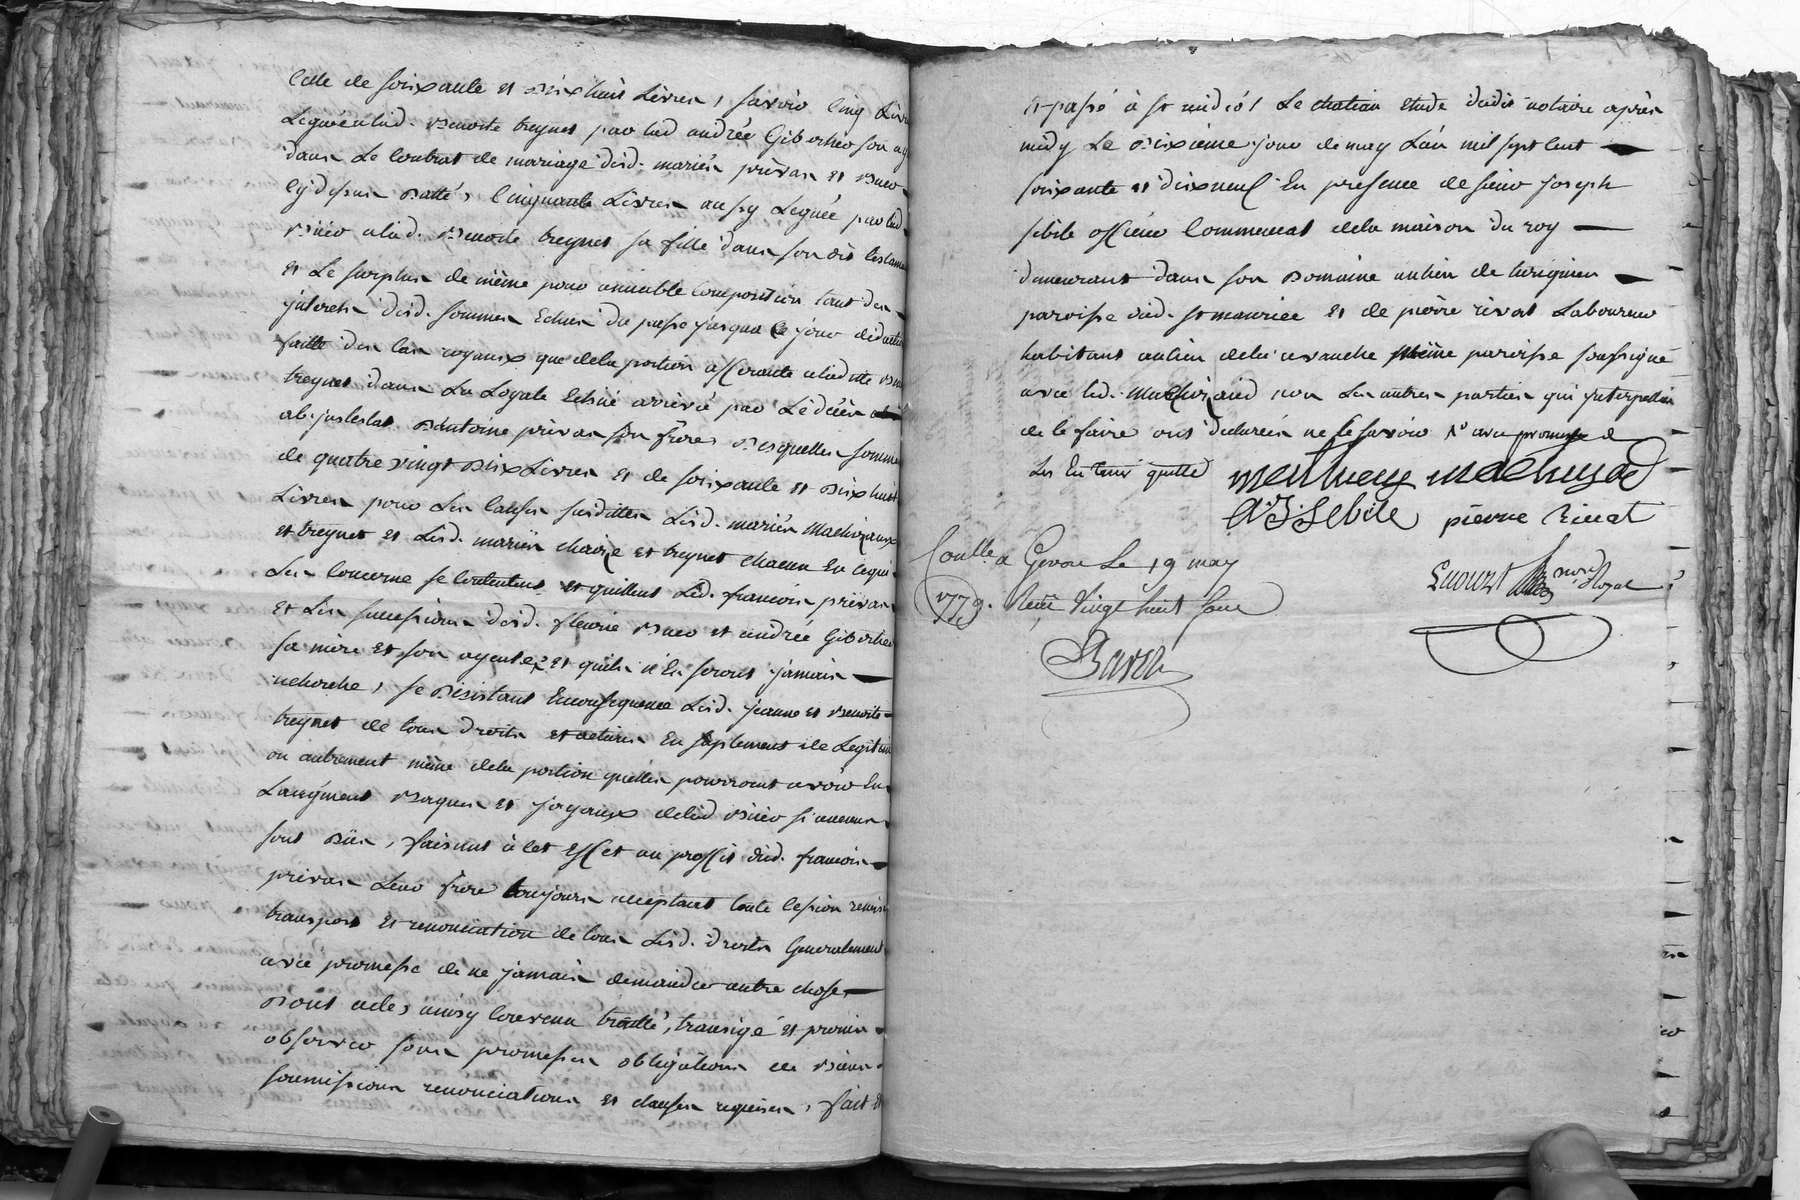 celle de soixante et dixhuit Livres, savoir cinq Livres
Leguée alad. Benoite treynet par lad andrée Giborher son ay
dans Le Contrat de mariage desd. mariés privas et
cydessus datté, Cinquante Livres aussy Leguée par lad
alad. Benoite treynet sa fille dans son dit testam
et Le surplus de même pour amiable Composition tant des
jnterets desd. sommes Echus du passé jusqua ce jour deduction
faitte des cas royaux que dela portion afferante aladitte
treynet dans La Logate Echüe arrivée par Le décès
ab-jntestat d'antoine privas son frère, desquelles sommes
de quatre vingt dix Livres et de soixante et dixhuit
Livres pour Les causes susdittes Lesd. mariés
et treynet et Lesd. mariés chaize et treynet chacun En cequi
Les Concerne se Contentent et quittent Led. francois privas
et Les successions desd. fleurie et andrée Giborher
sa mère et son ayeule, et quils n'En feront jamais
recherche, se desistant Enconsequence Lesd. jeanne et Benoite
treynet de tous droits et actions En suplement de Legitime
ou autrement même dela portion quelles pourroient avoir En
Laugment Bagues et joyaux delad si aucuns
sont dûs, faisant à cet effet au proffit dud. francois
privas Leur frère toujours acceptant toute cession remise
transport et renonciation de tous Lesd. droits Generalement
avec promesse de ne jamais demander autre chose
Dont acte, ainsy Convenu traitté, transigé et promis
observer sous promesses obligations de Biens
soumissions renonciations et clauses requises, fait et
et passé à st midiol Le chateau Etude dudit notaire après
midy Le dixième jour de may L'an mil sept Cent
soixante et dixneuf En presence de sieur joseph
sibile officier Commencal dela maison du roy
demeurant dans son Domaine aulieu de
paroisse dud. st maurice et de pierre rivat Laboureur
habitant aulieu dela revanche même paroisse soussigné
avec led. non Les autres parties qui jnterpellés
de le faire ont declarés ne le savoir avec promesse de
Les En tenir quitte
A J Sebile pierre Riuat
Conlle a Gevou Le 19 may
1779. Reçu Vingt huit sous
notre Royal